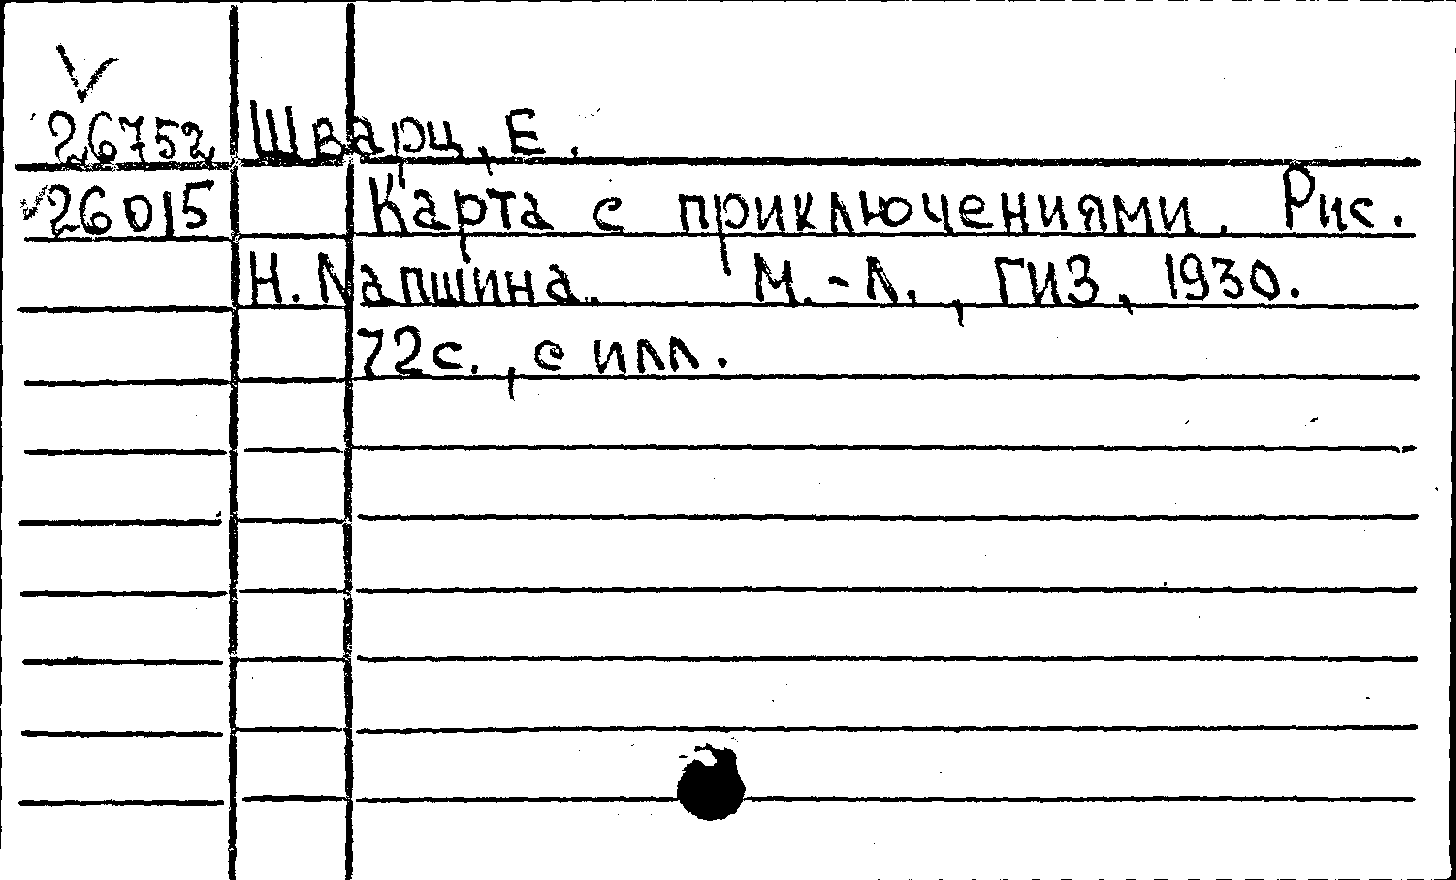 26752 Шварц, Е.
26015 Карта с приключениями. Рис.
Н. Лапшина. М.-Л., ГИЗ, 1930.
72с., с илл.